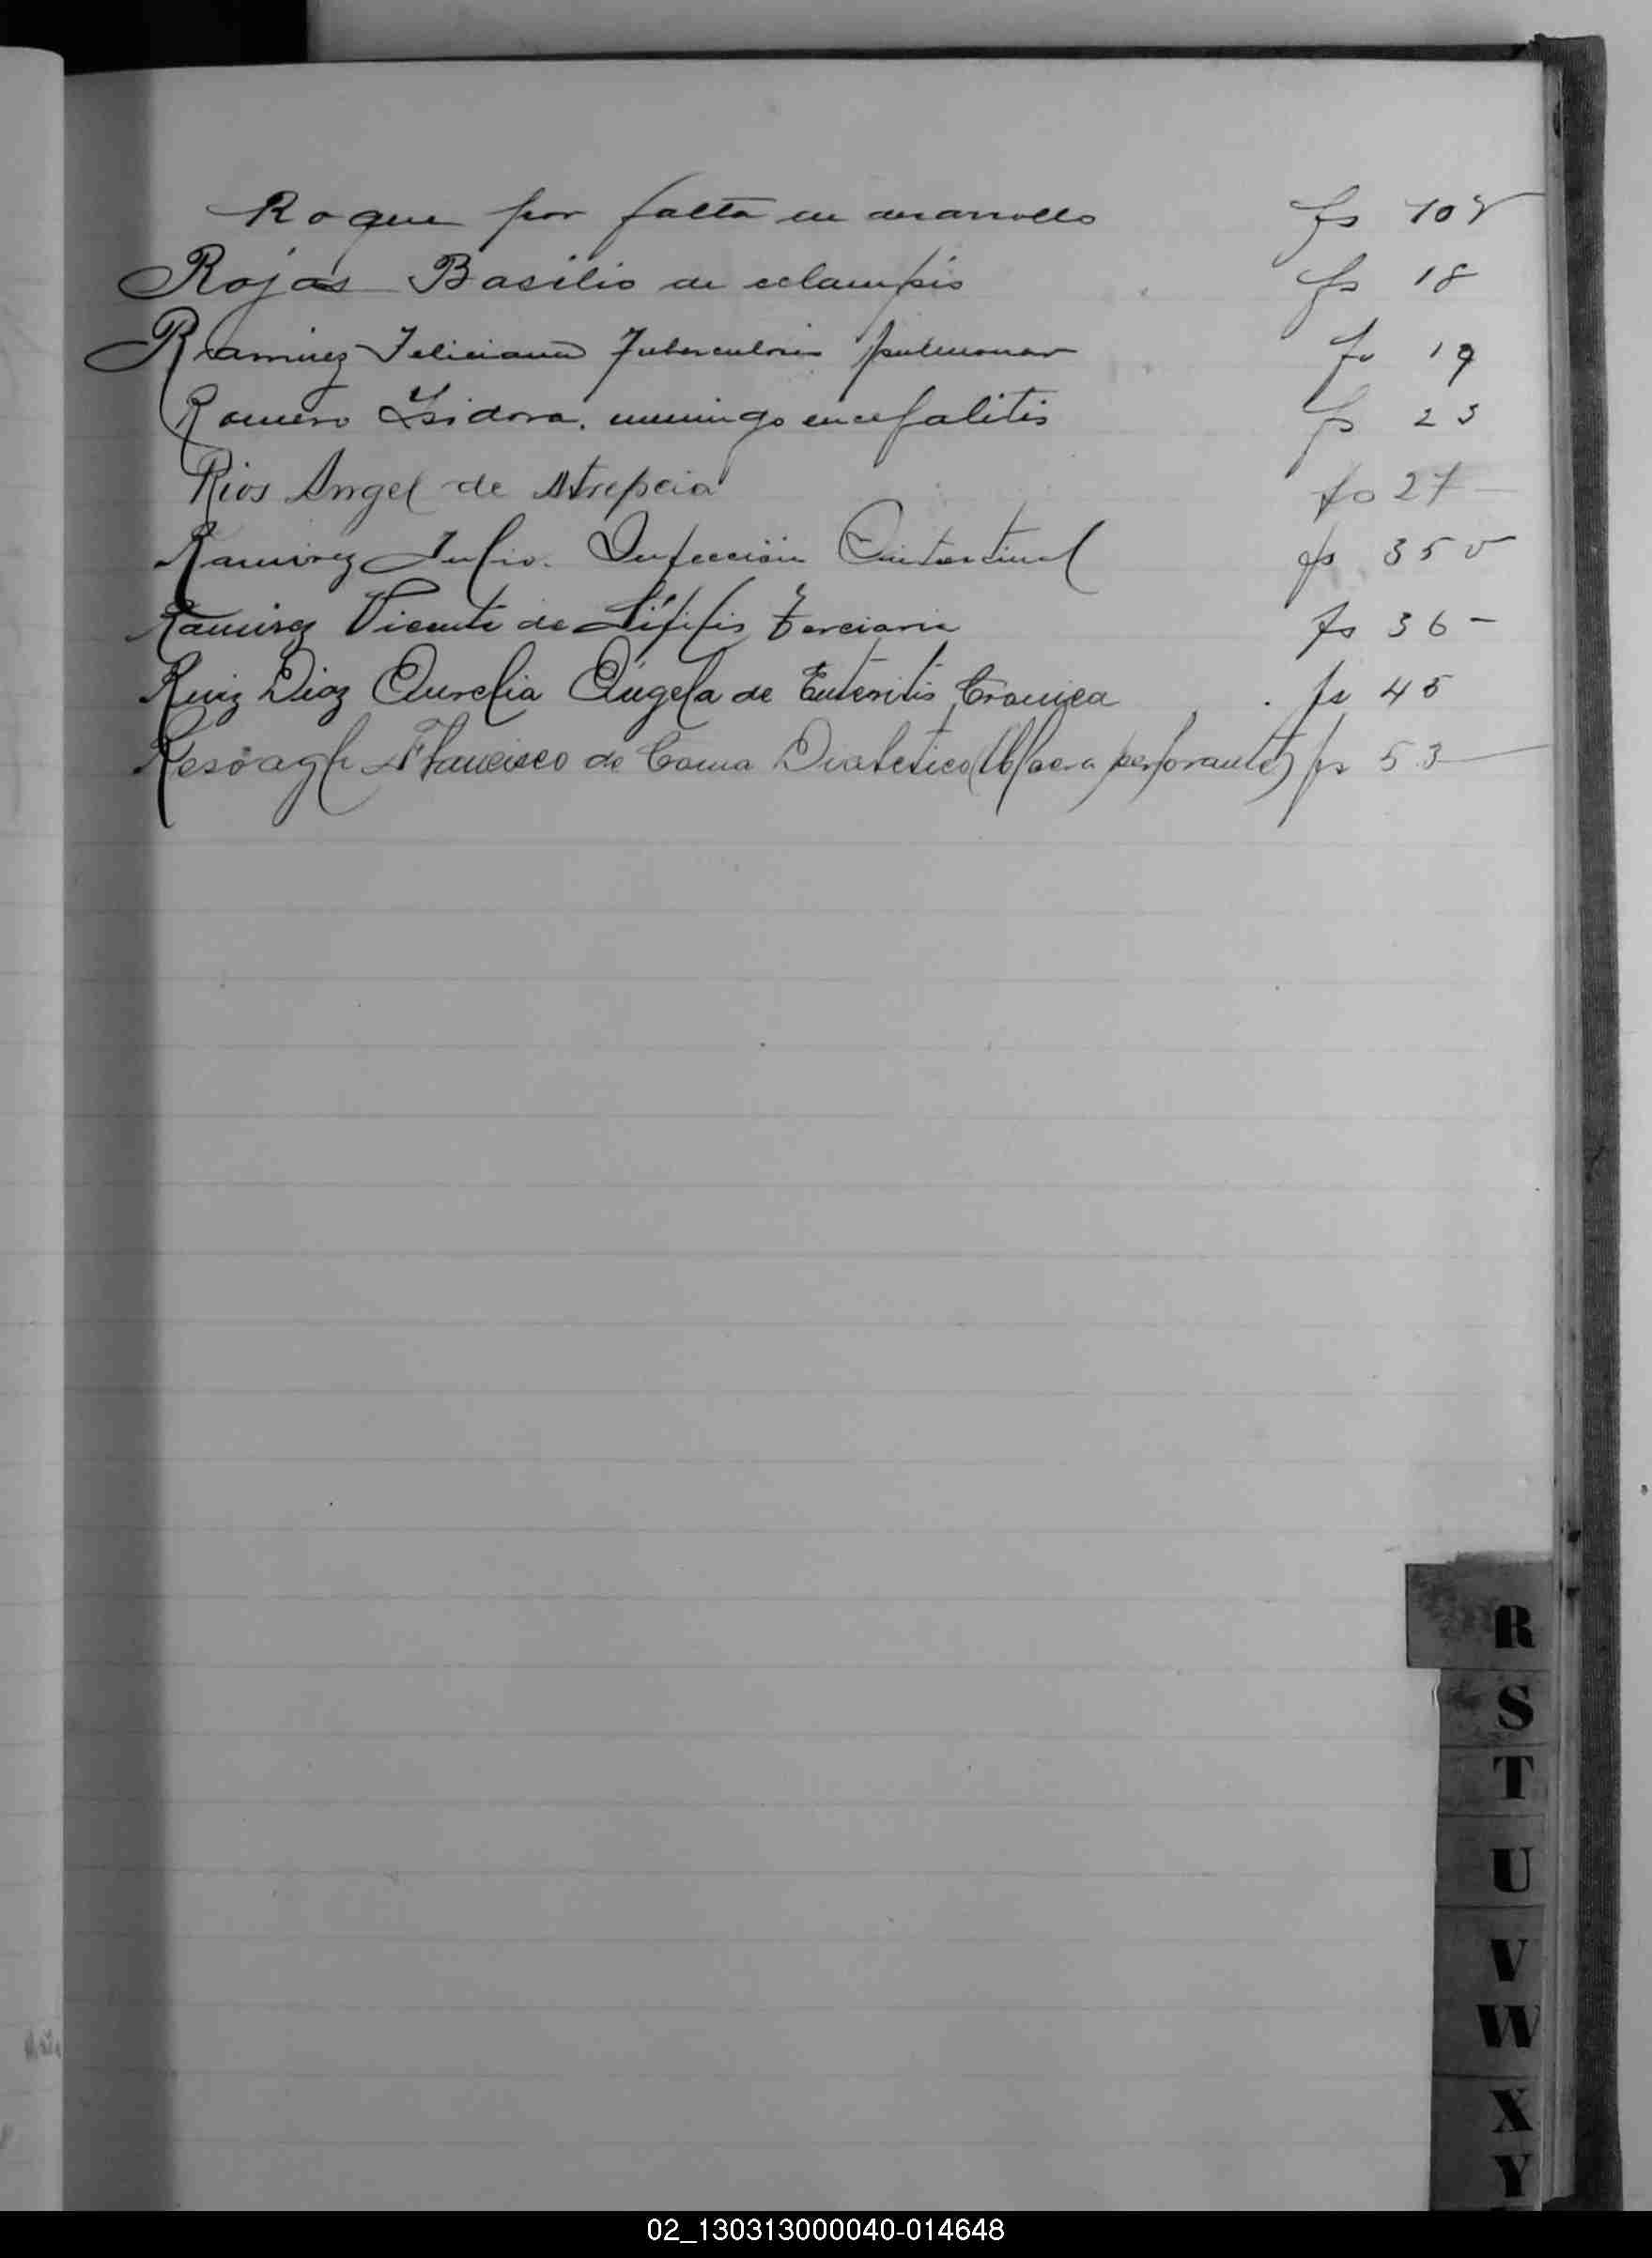 Roque por falta de desarrollo fs 10 v
Rojas Basilio de eclampsis fs 18
Ramirez Feliciana Tuberculosis pulmonar fo 19
Romero Isidora. meningo encefalitis fs 23
Rios Angel de Atrepcia fo 27
Ramirez Julio. Infección Intestinal fs 35 v
Ramirez Vicente de Sífilis Terciaria fs 36 -
Ruiz Diaz Aurelia Angela de Enteritis Cronica fs 45
Francisco de Coma Diabetico (Ulcera perforante) fs 53
R
S
T
U
V
W
X
Y
02_130313000040-014648